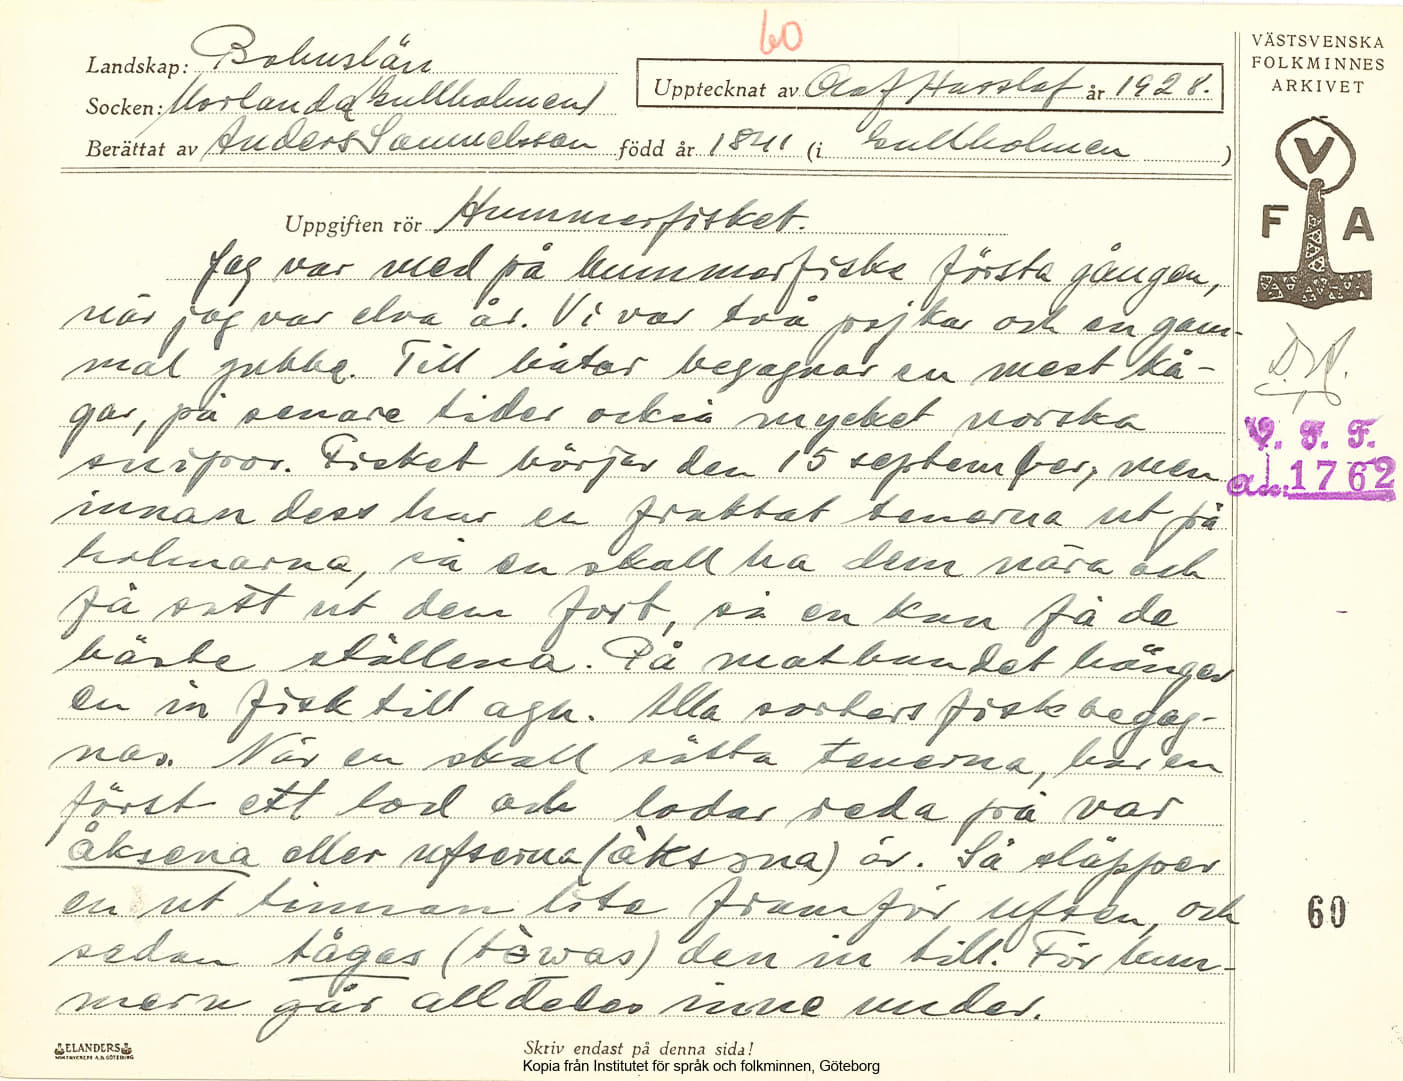 60
Landskap: Bohuslän
Upptecknat av Olof Hasslof år 1928.
Socken: Morlanda (Gullholmen)
Berättat av Anders Samuelsson född år 1841 (i Gullholmen )
Uppgiften rör Hummerfisket.
Jag var med på hummerfiske första gången,
när jag var elva år. Vi var två pojkar och en gam-
mal gubbe. Till båtar begagnar en mest kå-
gar, på senare tider också mycket norska
snipor. Fisket börjar den 15 september, men
innan dess har en fraktat tenerna ut på
holmarna, så en skall ha dem nära och
få satt ut dem fort, så en kan få de
bäste ställena. På matbandet hänger
en in fisk till agn. Alla sorters fisk begag-
nas. När en skall sätta tenerna, har en
först ett lod och lodar reda på var
åksena eller ufserna (àksəna) är. Så släpper
en ut tinnan lite framför ufsen, och
sedan tågas (tòwas) den in till. För hum-
mern går alldeles inne under.
VÄSTSVENSKA
FOLKMINNES
ARKIVET
V
F A
V. F. F.
1762
60
ELANDERS
Skriv endast på denna sida!
Kopia från Institutet för språk och folkminnen, Göteborg